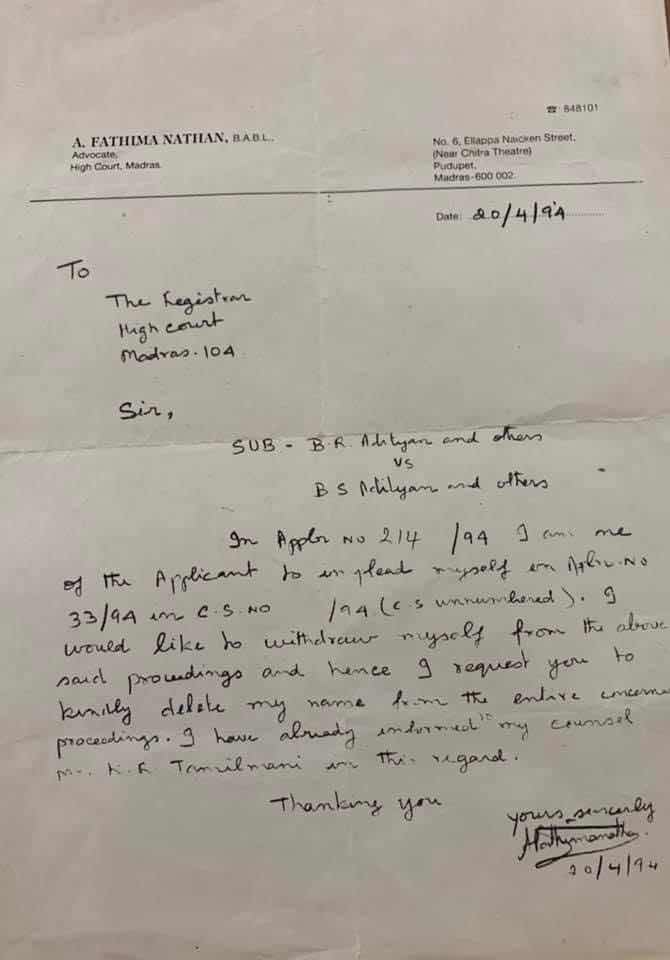 ☎ 848101
A. FATHIMA NATHAN, B.A.B.L.,
Advocate,
High Court, Madras.
No. 6, Ellappa Naicken Street,
(Near Chitra Theatre)
Pudupet,
Madras-600 002.
Date: 20/4/94
To
The Registrar
High court
Madras-104
Sir,
SUB - B.R. Adityan and others
vs
B S Adityan and others
In Appln No 214 /94 I am one
of the Applicant to implead myself in Appln. No
33/94 in C.S. NO /94 (C.S unnumbered). I
would like to withdraw myself from the above
said proceedings and hence I request you to
kindly delete my name from the entire
proceedings. I have already informed my counsel
Tamilmani in this regard.
Thanking you
yours sincerely
20/4/94